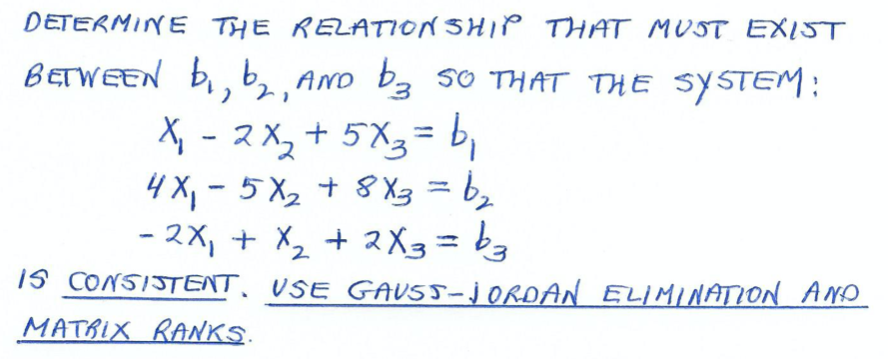 DETERMINE THE RELATIONSHIP THAT MUST EXIST
BETWEEN b₁, b₂, AND b₃ SO THAT THE SYSTEM:
X₁ - 2X₂ + 5X₃ = b₁
4X₁ - 5X₂ + 8X₃ = b₂
-2X₁ + X₂ + 2X₃ = b₃
IS CONSISTENT. USE GAUSS-JORDAN ELIMINATION AND
MATRIX RANKS.